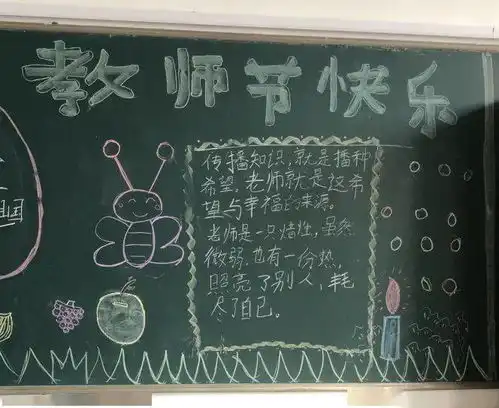 教师节快乐
传播知识,就是播种
希望,老师就是这希
望与幸福的来源。
老师是一只蜡烛,虽然
微弱,也有一份热,
照亮了别人,耗
尽了自己。